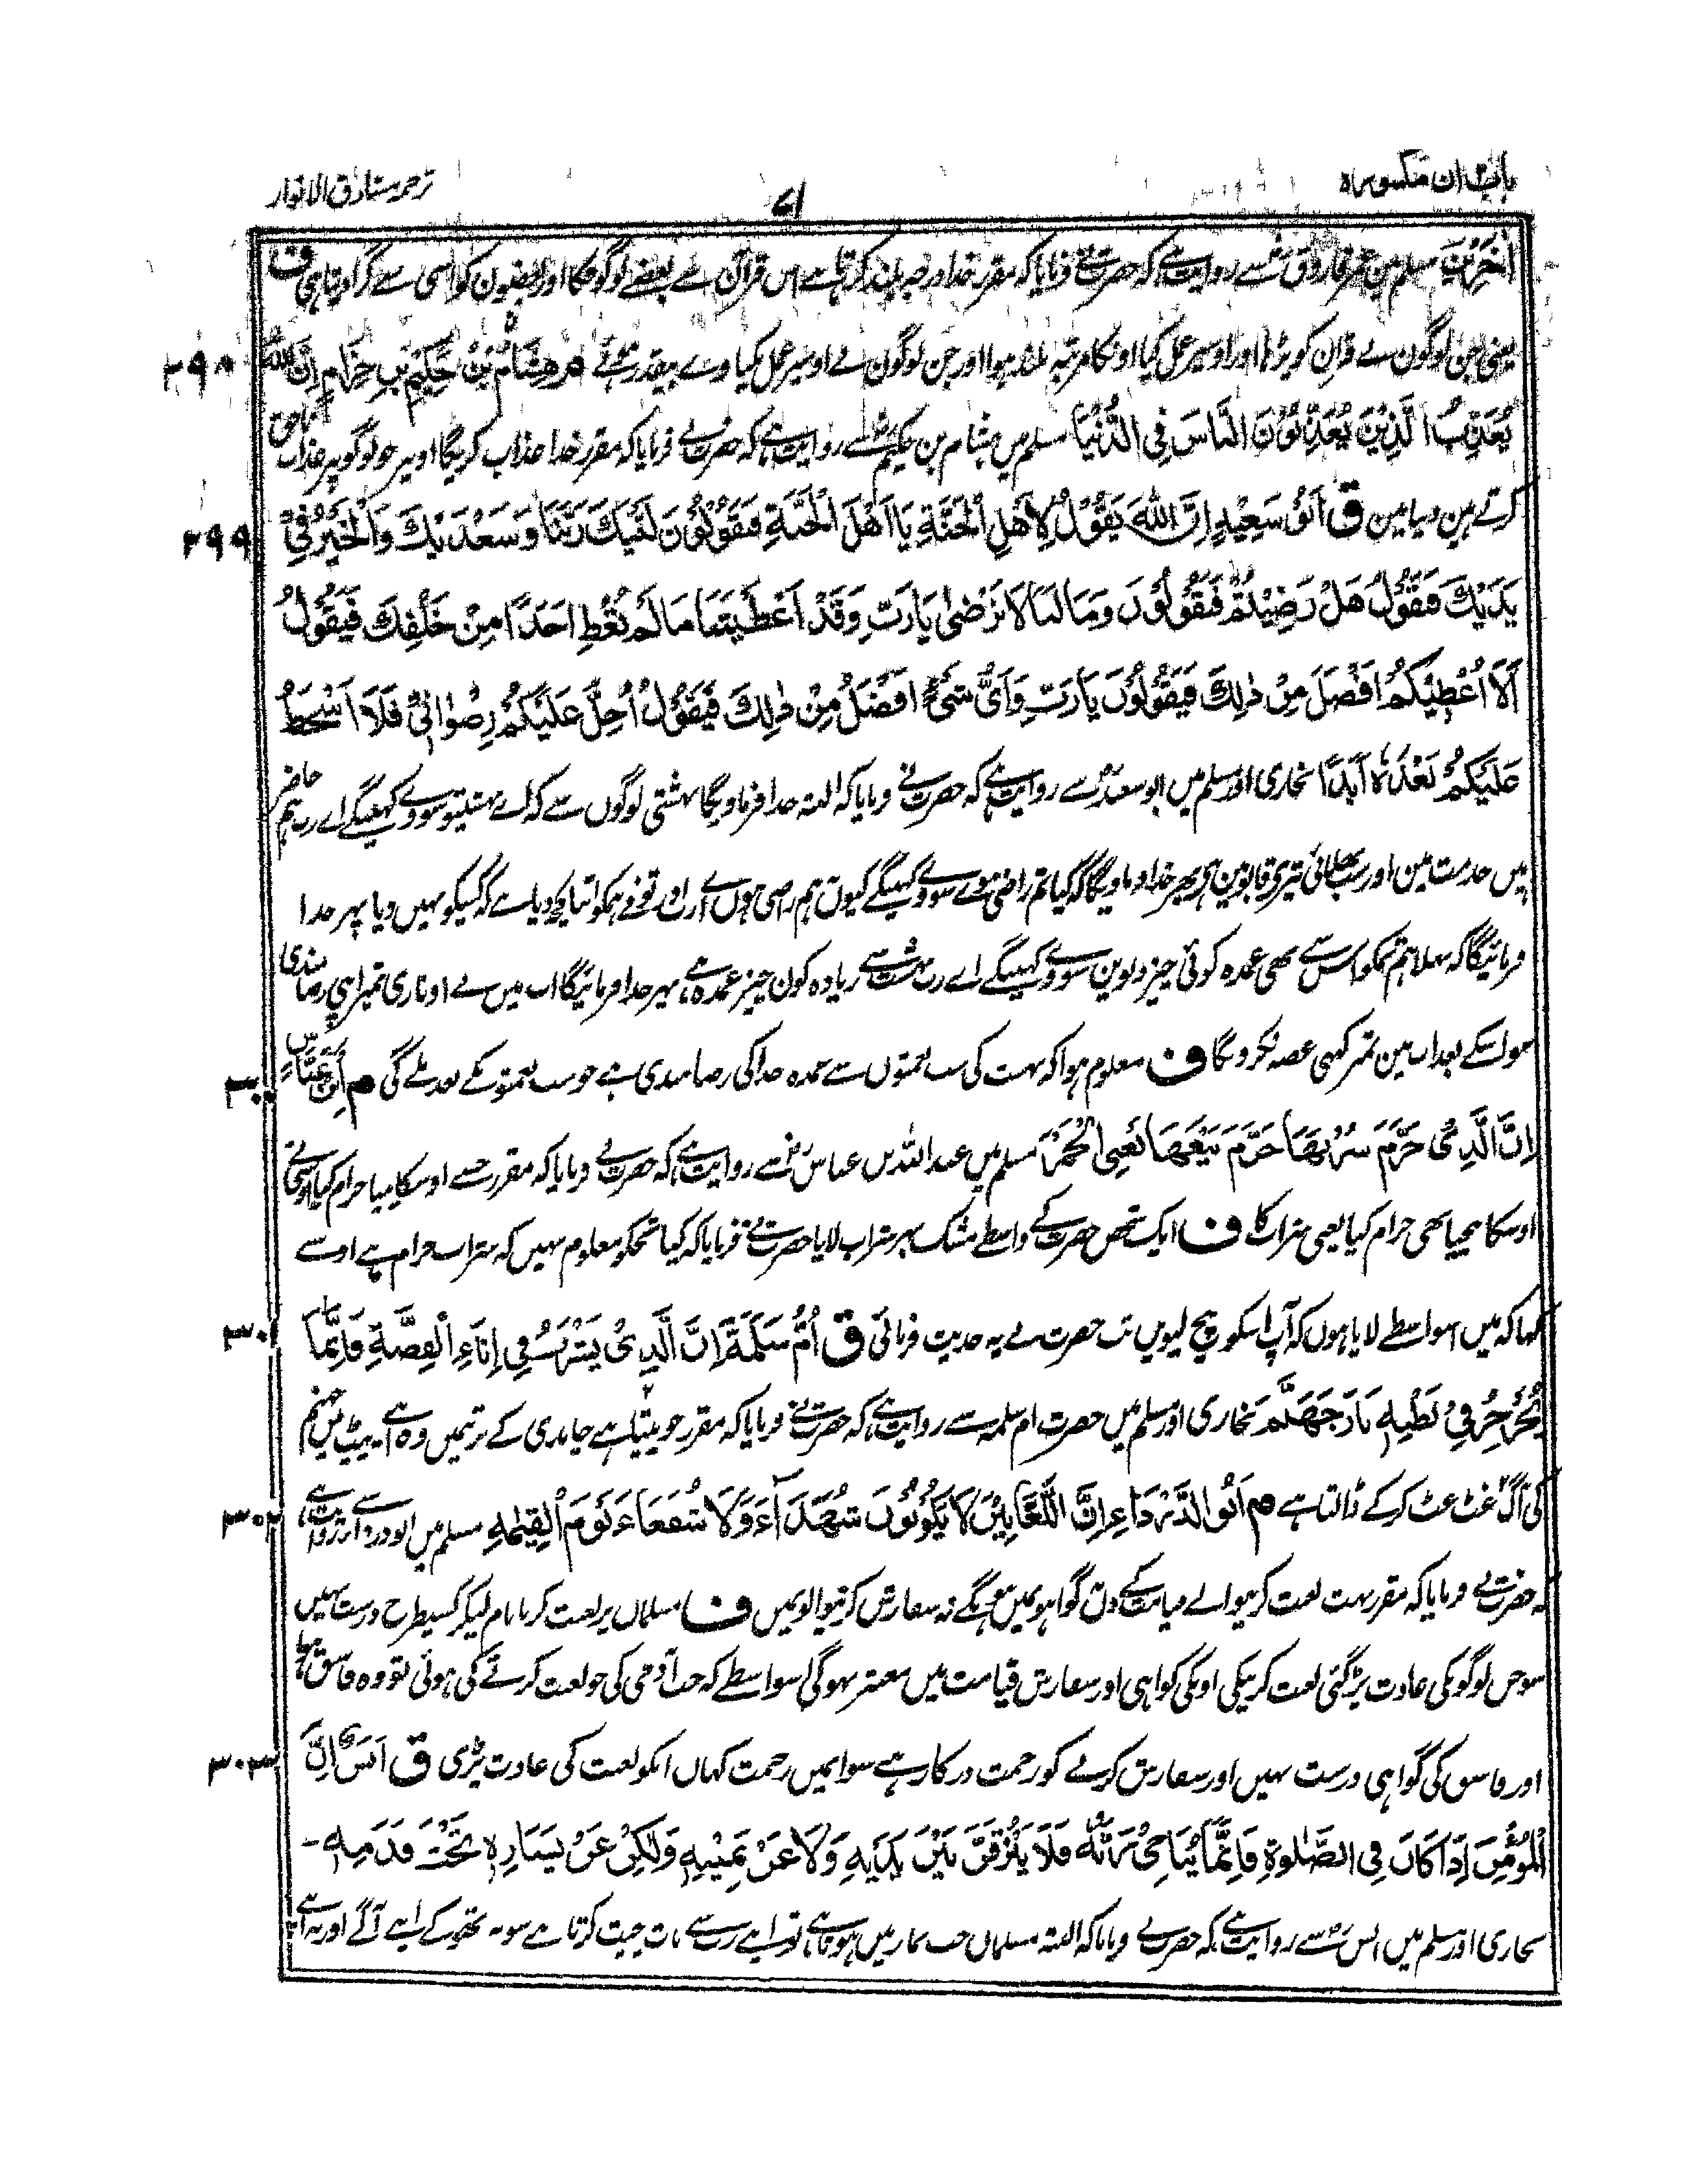 باب ان مکسورہ
۷۱
ترجمہ مشارق الانوار
اٰخَرِیْنَ مسلم مین عمر فاروق رض سے روایت ہے کہ حضرت نے فرمایا کہ مقرر خدا درجہ بلند کرتا ہے اس قرآن سے بعضے لوگونکا اور بعضون کو اسی سے گرا دیتا ہی ف
یعنی جن لوگون نے قران کو پڑھا اور اوسپر عمل کیا اونکا مرتبہ بلند ہوا اور جن لوگون نے اوسپر عمل نکیا وے بیقدر ہوئے م هِشَامُ بْنُ حَكِيْمِ بْنِ حِزَامٍ اِنَّ اللّٰهَ
۲۹۸
يُعَذِّبُ الَّذِيْنَ يُعَذِّبُوْنَ النَّاسَ فِي الدُّنْيَا مسلم میں ہشام بن حکیم رض سے روایت ہے کہ حضرت نے فرمایا کہ مقرر خدا عذاب کریگا اونپر جو لوگونپر ناحق عذاب
کرتے ہین دنیا مین ق اَبُوْ سَعِيْدٍ اِنَّ اللّٰهَ يَقُوْلُ لِاَهْلِ الْجَنَّةِ يَا اَهْلَ الْجَنَّةِ فَيَقُوْلُوْنَ لَبَّيْكَ رَبَّنَا وَسَعْدَيْكَ وَالْخَيْرُ فِيْ
۲۹۹
يَدَيْكَ فَيَقُوْلُ هَلْ رَضِيْتُمْ فَيَقُوْلُوْنَ وَمَا لَنَا لَا نَرْضٰى يَا رَبِّ وَقَدْ اَعْطَيْتَنَا مَا لَمْ تُعْطِ اَحَدًا مِنْ خَلْقِكَ فَيَقُوْلُ
اَلَا اُعْطِيْكُمْ اَفْضَلَ مِنْ ذٰلِكَ فَيَقُوْلُوْنَ يَا رَبِّ وَاَيُّ شَيْءٍ اَفْضَلُ مِنْ ذٰلِكَ فَيَقُوْلُ اُحِلُّ عَلَيْكُمْ رِضْوَانِيْ فَلَا اَسْخَطُ
عَلَيْكُمْ بَعْدَهٗ اَبَدًا بخاری اور مسلم میں ابو سعید رض سے روایت ہے کہ حضرت نے فرمایا کہ البتہ خدا فرماویگا بہشتی لوگوں سے کہ اے بہشتیو سو وے کہینگے اے رب ہم حاضر
ہیں خدمت مین اور سب بھلائی تیری قابو مین ہی پھر خدا فرماویگا کہ کیا تم راضی ہوے سو وے کہینگے کیوں نہم راضی ہوں اے رب اور تونے ہمکو اتنا کچھ دیا ہے کہ کسیکو نہیں دیا پہر خدا
فرمائیگا کہ بہلا ہم تمکو اس سے بھی عمدہ کوئی چیز دیوین سو وے کہینگے اے رب بہشت سے زیادہ کون چیز عمدہ ہے پہر خدا فرمائیگا اب میں نے اوتاری تمپر اپنی رضا مندی
سو اسکے بعد اب مین تمپر کبھی غصہ نکرونگا ف معلوم ہوا کہ بہشت کی سب نعمتوں سے عمدہ خدا کی رضامندی ہے جو سب نعمتونکے بعد ملے گی م اِبْنُ عَبَّاسٍ
۳۰۰
اِنَّ الَّذِيْ حَرَّمَ شُرْبَهَا حَرَّمَ بَيْعَهَا يَعْنِي الْخَمْرَ مسلم میں عبد اللہ بن عباس رض سے روایت ہے کہ حضرت نے فرمایا کہ مقرر جسنے اوسکا پینا حرام کیا اوسی نے
اوسکا بیچنا بھی حرام کیا یعنی شراب کا ف ایک شخص حضرت کے واسطے مشک بہر شراب لایا حضرت نے فرمایا کہ کیا تجھکو معلوم نہیں کہ شراب حرام ہے اوسنے
کہا کہ میں اسواسطے لایا ہوں کہ آپ اسکو بیچ لیویں تب حضرت نے یہ حدیث فرمائی ق اُمُّ سَلَمَةَ اِنَّ الَّذِيْ يَشْرَبُ فِي اِنَاءِ الْفِضَّةِ فَاِنَّمَا
۳۰۱
يُجَرْجِرُ فِيْ بَطْنِهٖ نَارَ جَهَنَّمَ بخاری اور مسلم میں حضرت ام سلمہ سے روایت ہے کہ حضرت نے فرمایا کہ مقرر جو پیتا ہے چاندی کے برتنیں وہ اپنے پیٹ میں جہنم
کی آگ غٹ غٹ کرکے ڈالتا ہے م اَبُو الدَّرْدَاءِ اِنَّ اللَّعَّانِيْنَ لَا يَكُوْنُوْنَ شُهَدَآءَ وَلَا شُفَعَاءَ يَوْمَ الْقِيٰمَةِ مسلم میں ابو دردا رض سے روایت ہے
۳۰۲
کہ حضرت نے فرمایا کہ مقرر بہت لعنت کرنیوالے قیامت کے دن نہ گواہونمیں ہونگے نہ سفارش کرنیوالونمیں ف مسلمان پر لعنت کرنا نام لیکر کسیطرح درست نہیں
سو جن لوگونکی عادت پڑ گئی لعنت کرنیکی اونکی گواہی اور سفارش قیامت میں معتبر نہوگی اسواسطے کہ جب آدمی کی خو لعنت کرنے کی ہوئی تو وہ فاسق ہوا
اور فاسق کی گواہی درست نہیں اور سفارش کرنے کو رحمت درکار ہے سو انمیں رحمت کہاں انکو لعنت کی عادت پڑی ق اَنَسٌ اِنَّ
۳۰۳
الْمُؤْمِنَ اِذَا كَانَ فِي الصَّلٰوةِ فَاِنَّمَا يُنَاجِيْ رَبَّهٗ فَلَا يَبْزُقَنَّ بَيْنَ يَدَيْهِ وَلَا عَنْ يَمِيْنِهٖ وَلٰكِنْ عَنْ يَسَارِهٖ تَحْتَ قَدَمِهٖ -
بخاری اور مسلم میں انس رض سے روایت ہے کہ حضرت نے فرمایا کہ البتہ مسلمان جب نماز میں ہوتا ہے تو اپنے رب سے بات چیت کرتا ہے سو نہ تھوکے اپنے آگے اور نہ اپنے